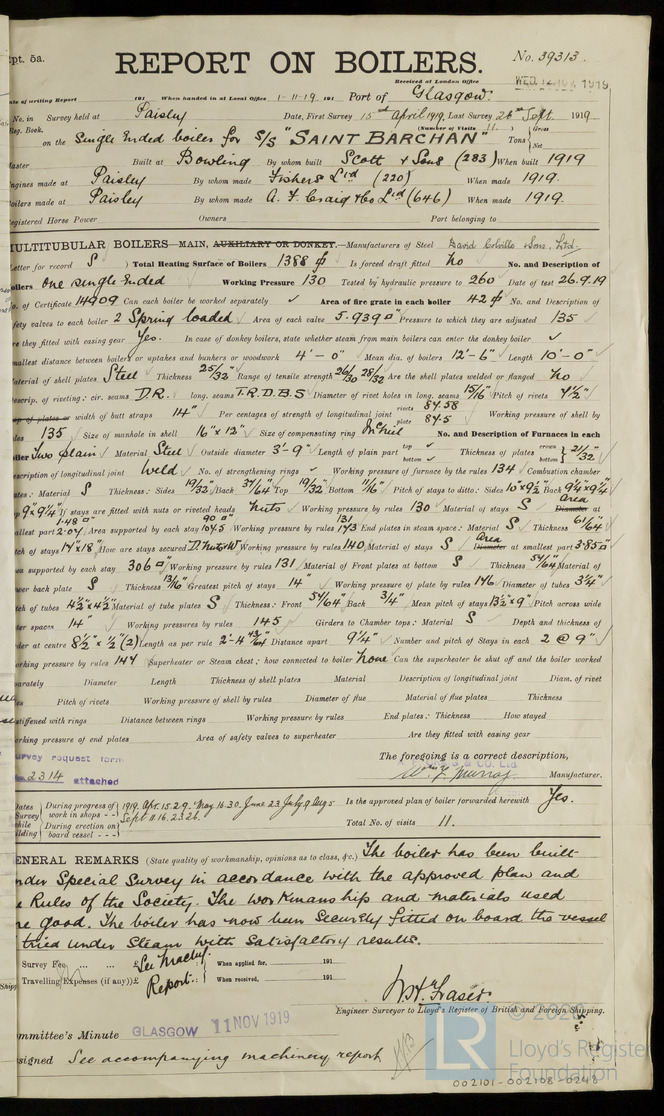 pt. 5a.
REPORT ON BOILERS.
No. 39313
Received at London Office
WED. 12 NOV. 1919
ate of writing Report 191 When handed in at Local Office 1-11-19 191 Port of Glasgow.
No. in Survey held at Paisley Date, First Survey 15th April 1919. Last Survey 26th Sept. 1919
eg. Book. (Number of Visits 11.)
on the Single Ended boilers for S/S "SAINT BARCHAN" Tons { Gross Net
aster Built at Bowling By whom built Scott & Sons (283) When built 1919
ngines made at Paisley By whom made Fishers Ltd (220) When made 1919.
oilers made at Paisley By whom made A. F. Craig & Co Ltd (646) When made 1919.
egistered Horse Power Owners Port belonging to
MULTITUBULAR BOILERS—MAIN, AUXILIARY OR DONKEY.—Manufacturers of Steel David Colville & Sons, Ltd.
Letter for record S) Total Heating Surface of Boilers 1388 ф Is forced draft fitted No No. and Description of
oilers One single Ended Working Pressure 130 Tested by hydraulic pressure to 260 Date of test 26.9.19
o. of Certificate 14909 Can each boiler be worked separately ✓ Area of fire grate in each boiler 42 ф No. and Description of
fety valves to each boiler 2 Spring loaded Area of each valve 5.939 □" Pressure to which they are adjusted 135
re they fitted with easing gear Yes. In case of donkey boilers, state whether steam from main boilers can enter the donkey boiler ✓
mallest distance between boilers or uptakes and bunkers or woodwork 4'-0" Mean dia. of boilers 12'-6" Length 10'-0"
aterial of shell plates Steel Thickness 25/32" Range of tensile strength 26/30 28/32 Are the shell plates welded or flanged No
escrip. of riveting: cir. seams D.R. long. seams T.R.D.B.S Diameter of rivet holes in long. seams 15/16" Pitch of rivets 4 1/2"
ap of plates or width of butt straps 14" Per centages of strength of longitudinal joint rivets 84.58 plate 84.5 Working pressure of shell by
les 135 Size of manhole in shell 16" x 12" Size of compensating ring McNeil No. and Description of Furnaces in each
oiler Two plain Material Steel Outside diameter 3'-9" Length of plain part top bottom Thickness of plates crown bottom } 21/32"
escription of longitudinal joint Weld No. of strengthening rings ✓ Working pressure of furnace by the rules 134 Combustion chamber
ates: Material S Thickness: Sides 19/32" Back 37/64" Top 19/32" Bottom 11/16" Pitch of stays to ditto: Sides 10" x 9 1/2" Back 9 1/4" x 9 1/4"
p 9" x 9 1/4" If stays are fitted with nuts or riveted heads Nuts Working pressure by rules 130 Material of stays S Area Diameter at
allest part 1.48 □" 2.07 Area supported by each stay 90 □" 104.5 Working pressure by rules 131 173 End plates in steam space: Material S Thickness 61/64"
tch of stays 17" x 18" How are stays secured D. Nuts & W Working pressure by rules 140 Material of stays S Area Diameter at smallest part 3.85 □"
ea supported by each stay 306 □" Working pressure by rules 131 Material of Front plates at bottom S Thickness 54/64" Material of
wer back plate S Thickness 13/16" Greatest pitch of stays 14" Working pressure of plate by rules 146 Diameter of tubes 3 1/4"
tch of tubes 4 1/2" x 4 1/2" Material of tube plates S Thickness: Front 54/64" Back 3/4" Mean pitch of stays 13 1/2" x 9" Pitch across wide
ter spaces 14" Working pressures by rules 145 Girders to Chamber tops: Material S Depth and thickness of
der at centre 8 1/2" x 1/2" (2) Length as per rule 2'-4 43/64" Distance apart 9 1/4" Number and pitch of Stays in each 2 @ 9"
orking pressure by rules 147 Superheater or Steam chest; how connected to boiler None Can the superheater be shut off and the boiler worked
parately Diameter Length Thickness of shell plates Material Description of longitudinal joint Diam. of rivet
Pitch of rivets Working pressure of shell by rules Diameter of flue Material of flue plates Thickness
stiffened with rings Distance between rings Working pressure by rules End plates: Thickness How stayed
orking pressure of end plates Area of safety valves to superheater Are they fitted with easing gear
urvey request form
2314 attached
The foregoing is a correct description,
Wm. Y. Murray Manufacturer.
Dates Survey while ilding { During progress of work in shops - - 1919. Apr. 15. 29. May 16. 30. June 23 July 9 Aug 5 Sept 11. 16. 23. 26.
During erection on board vessel - - -
Is the approved plan of boiler forwarded herewith Yes.
Total No. of visits 11.
ENERAL REMARKS (State quality of workmanship, opinions as to class, &c.) The boiler has been built
nder Special Survey in accordance with the approved plan and
e Rules of the Society. The workmanship and materials used
re good. The boiler has now been Securely fitted on board the vessel
tried under Steam with Satisfactory results.
Survey Fee ... ... £ See Machy. When applied for, 191
Travelling Expenses (if any) £ Report. When received, 191
W. H. Fraser
Engineer Surveyor to Lloyd's Register of British and Foreign Shipping.
ommittee's Minute GLASGOW 11 NOV 1919
signed See accompanying machinery report
LR © 2020
Lloyd's Register
Foundation
002101-002108-0248